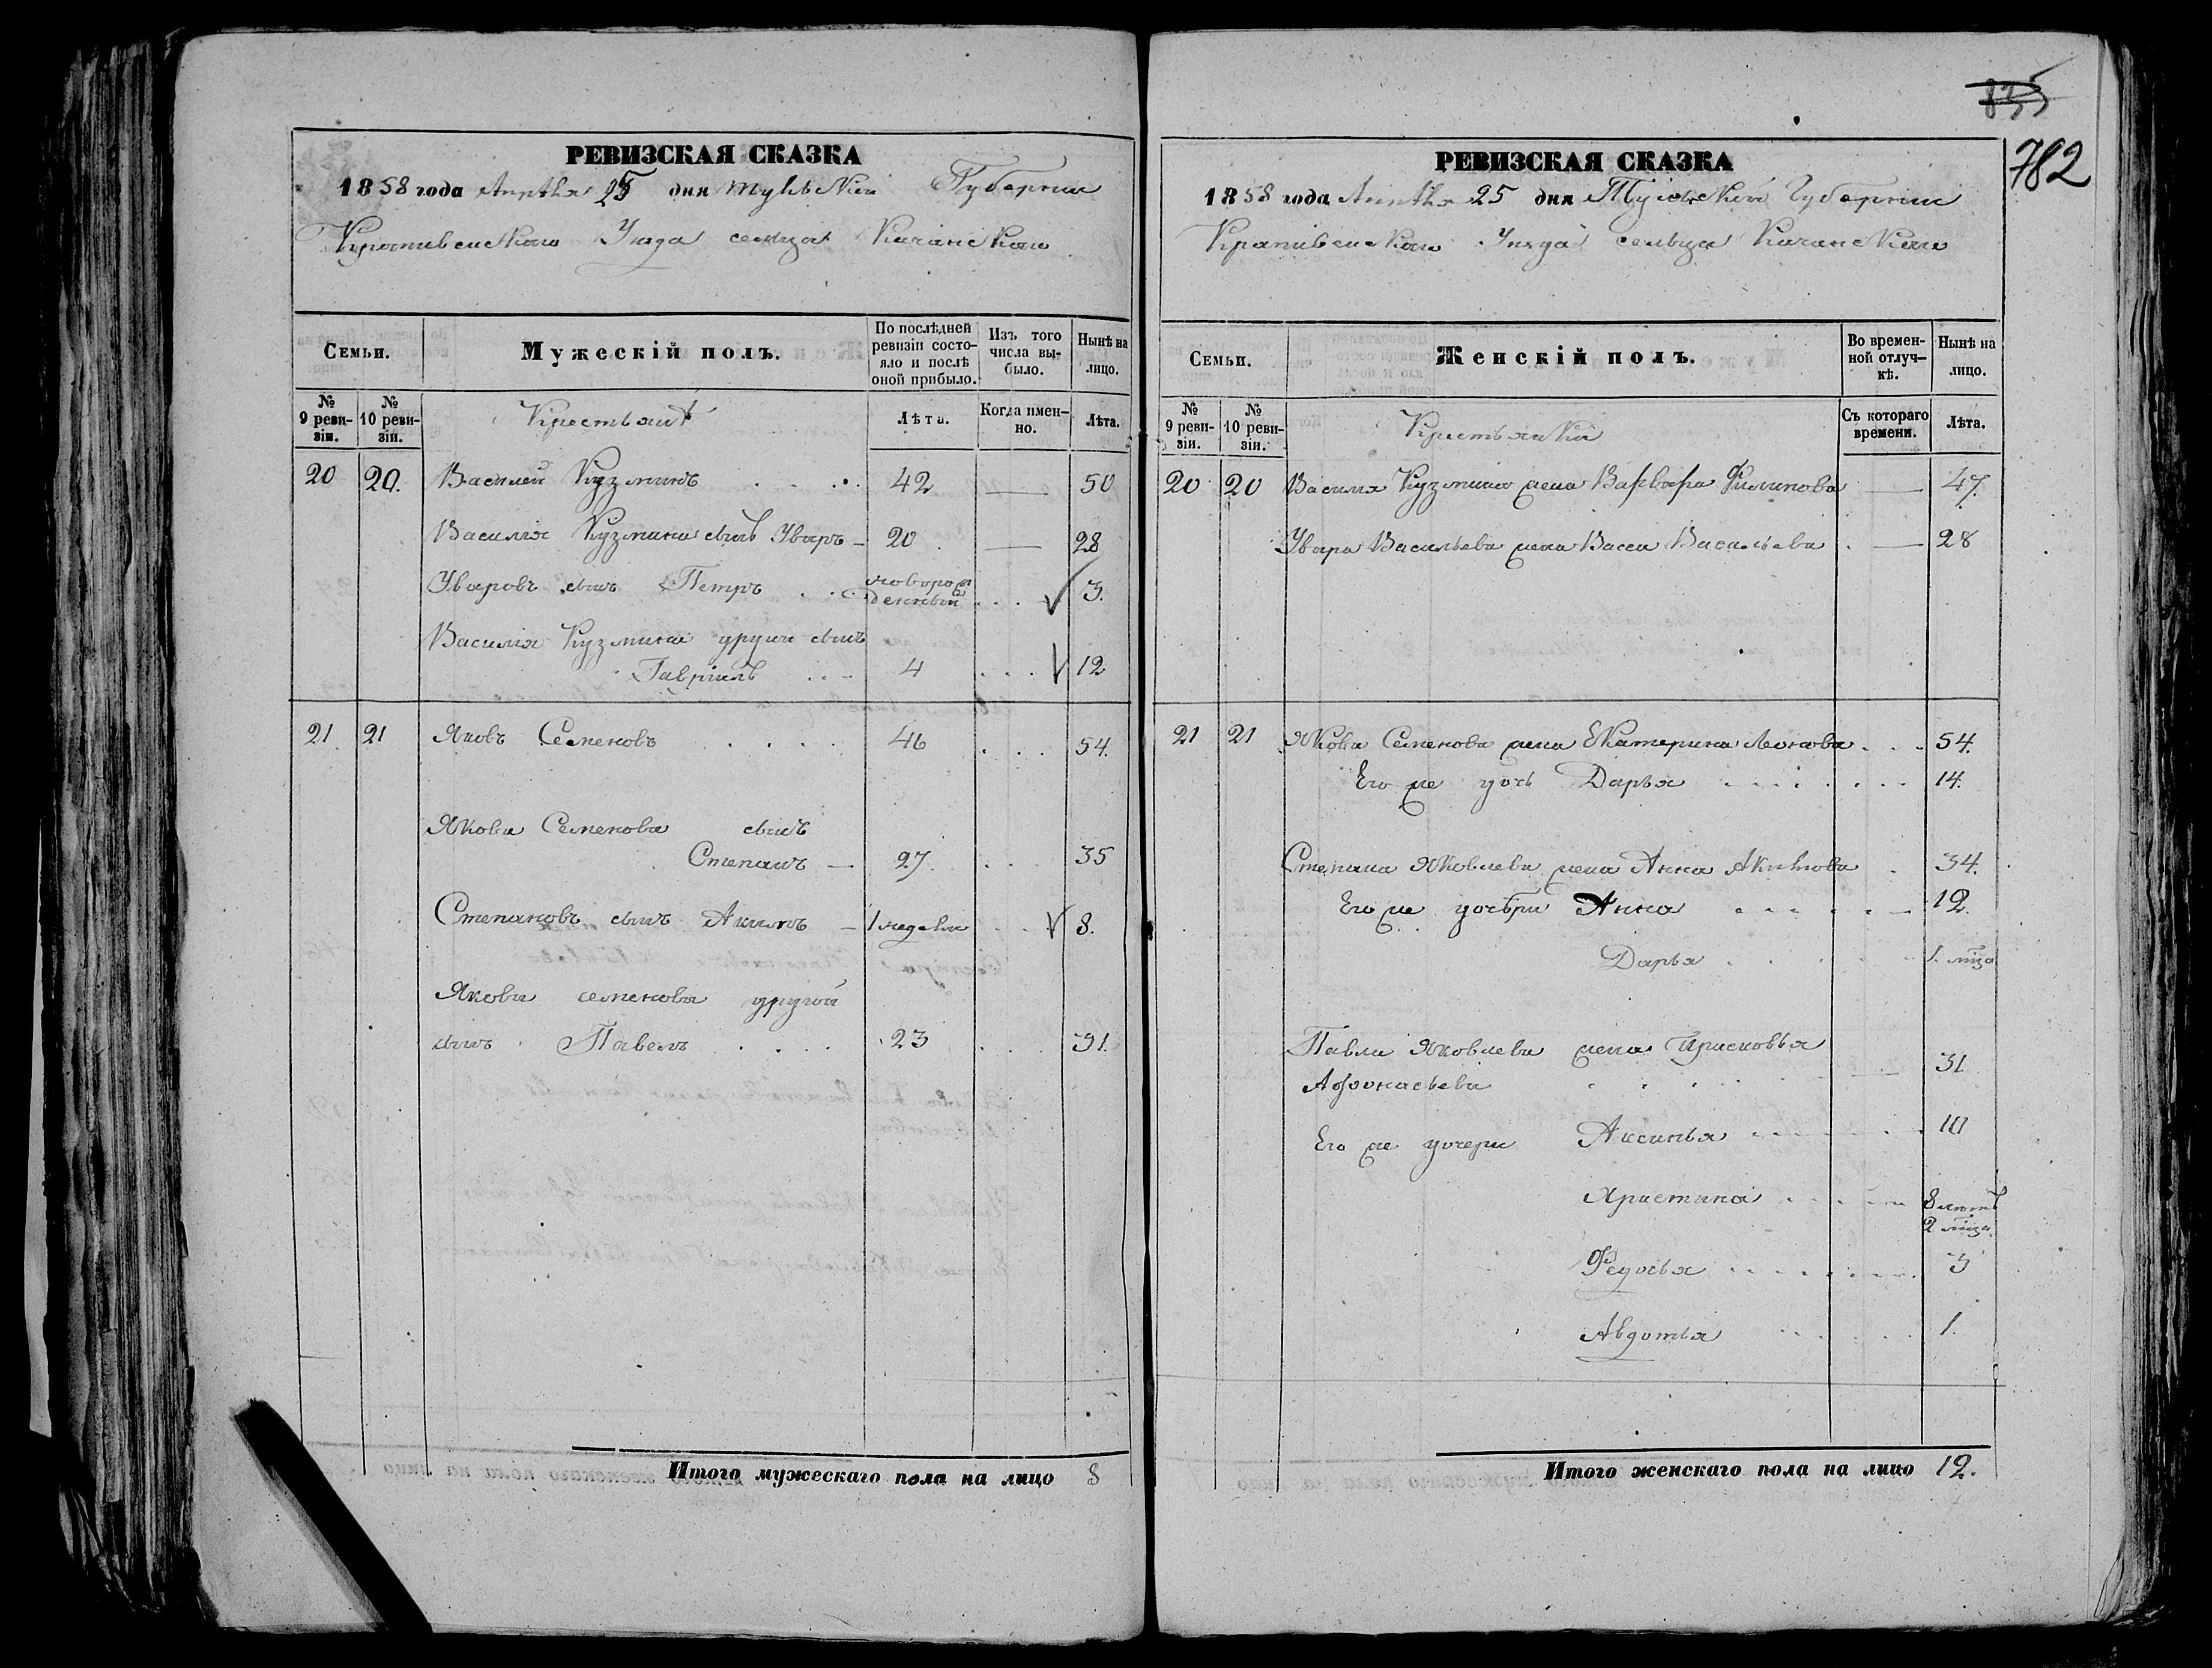 РЕВИЗСКАЯ СКАЗКА
1858 года Апрѣля 25 дня Тульской Губернии
Крапивенскаго Уѣзда сельца Качанскаго
Семьи.
Мужескій полъ.
По послѣдней ревизіи состояло и послѣ оной прибыло.
Изъ того числа выбыло.
Нынѣ на лицо.
№ 9 ревизіи.
№ 10 ревизіи.
Крестьянѣ
Лѣта.
Когда именно.
Лѣта.
20 20. Василей Кузминъ 42 50
Василія Кузмина сынъ Уваръ 20 28
Уваровъ сынъ Петръ новорожденный 3.
Василія Кузмина другой сынъ
Гавріилъ 4 12
21 21 Яковъ Семеновъ 46 54.
Якова Семенова сынъ
Степанъ 27. 35
Степановъ сынъ Акимъ 1 недели 8.
Якова семенова другой
сынъ Павелъ 23 31.
Итого мужескаго пола на лицо 8
835
782
РЕВИЗСКАЯ СКАЗКА
1858 года Апрѣля 25 дня Тульской Губернии
Крапивенскаго Уѣзда сельца Качанскаго
Семьи.
Женскій полъ.
Во временной отлучкѣ.
Нынѣ на лицо.
№ 9 ревизіи.
№ 10 ревизіи.
Крестьянки
Съ котораго времени.
Лѣта.
20 20 Василия Кузмина жена Варвара Филипова 47.
Увара Васильева жена Васса Васильева 28
21 21 Якова Семенова жена Екатерина Леонова 54.
Его же дочь Дарья 14.
Степана Яковлева жена Анна Акимова 34.
Его же дочери Анна 12.
Дарья 1. мца
Павла Яковлева жена Прасковья
Афонасьева 31
Его же дочери Аксинья 10
Христина 8 летъ
2 мца.
Федосья 3
Авдотья 1.
Итого женскаго пола на лицо 12.